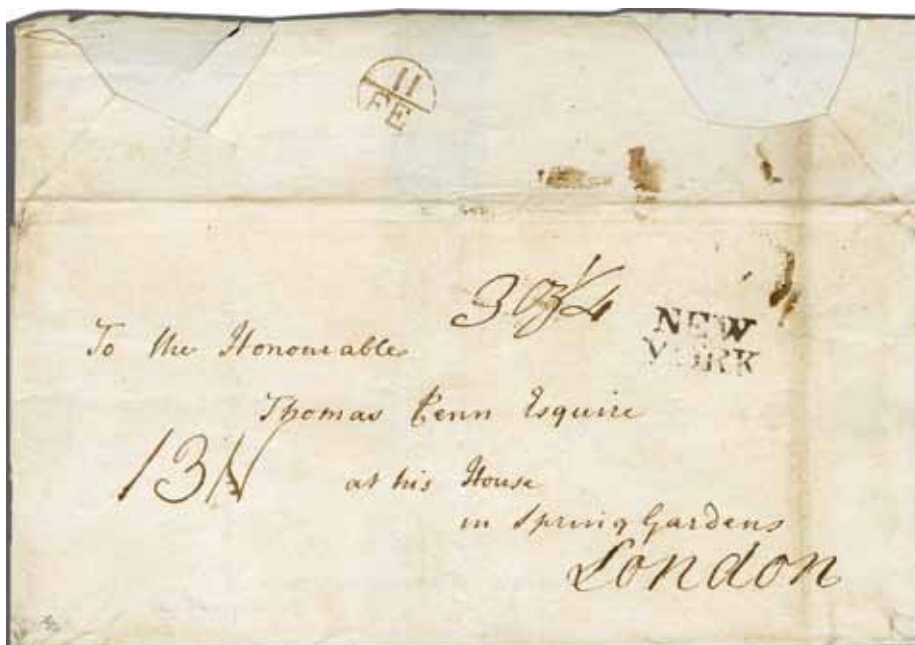 11
FE
3 oz 1/4
NEW
YORK
To the Honourable
Thomas Penn Esquire
at his House
in Spring Gardens
London